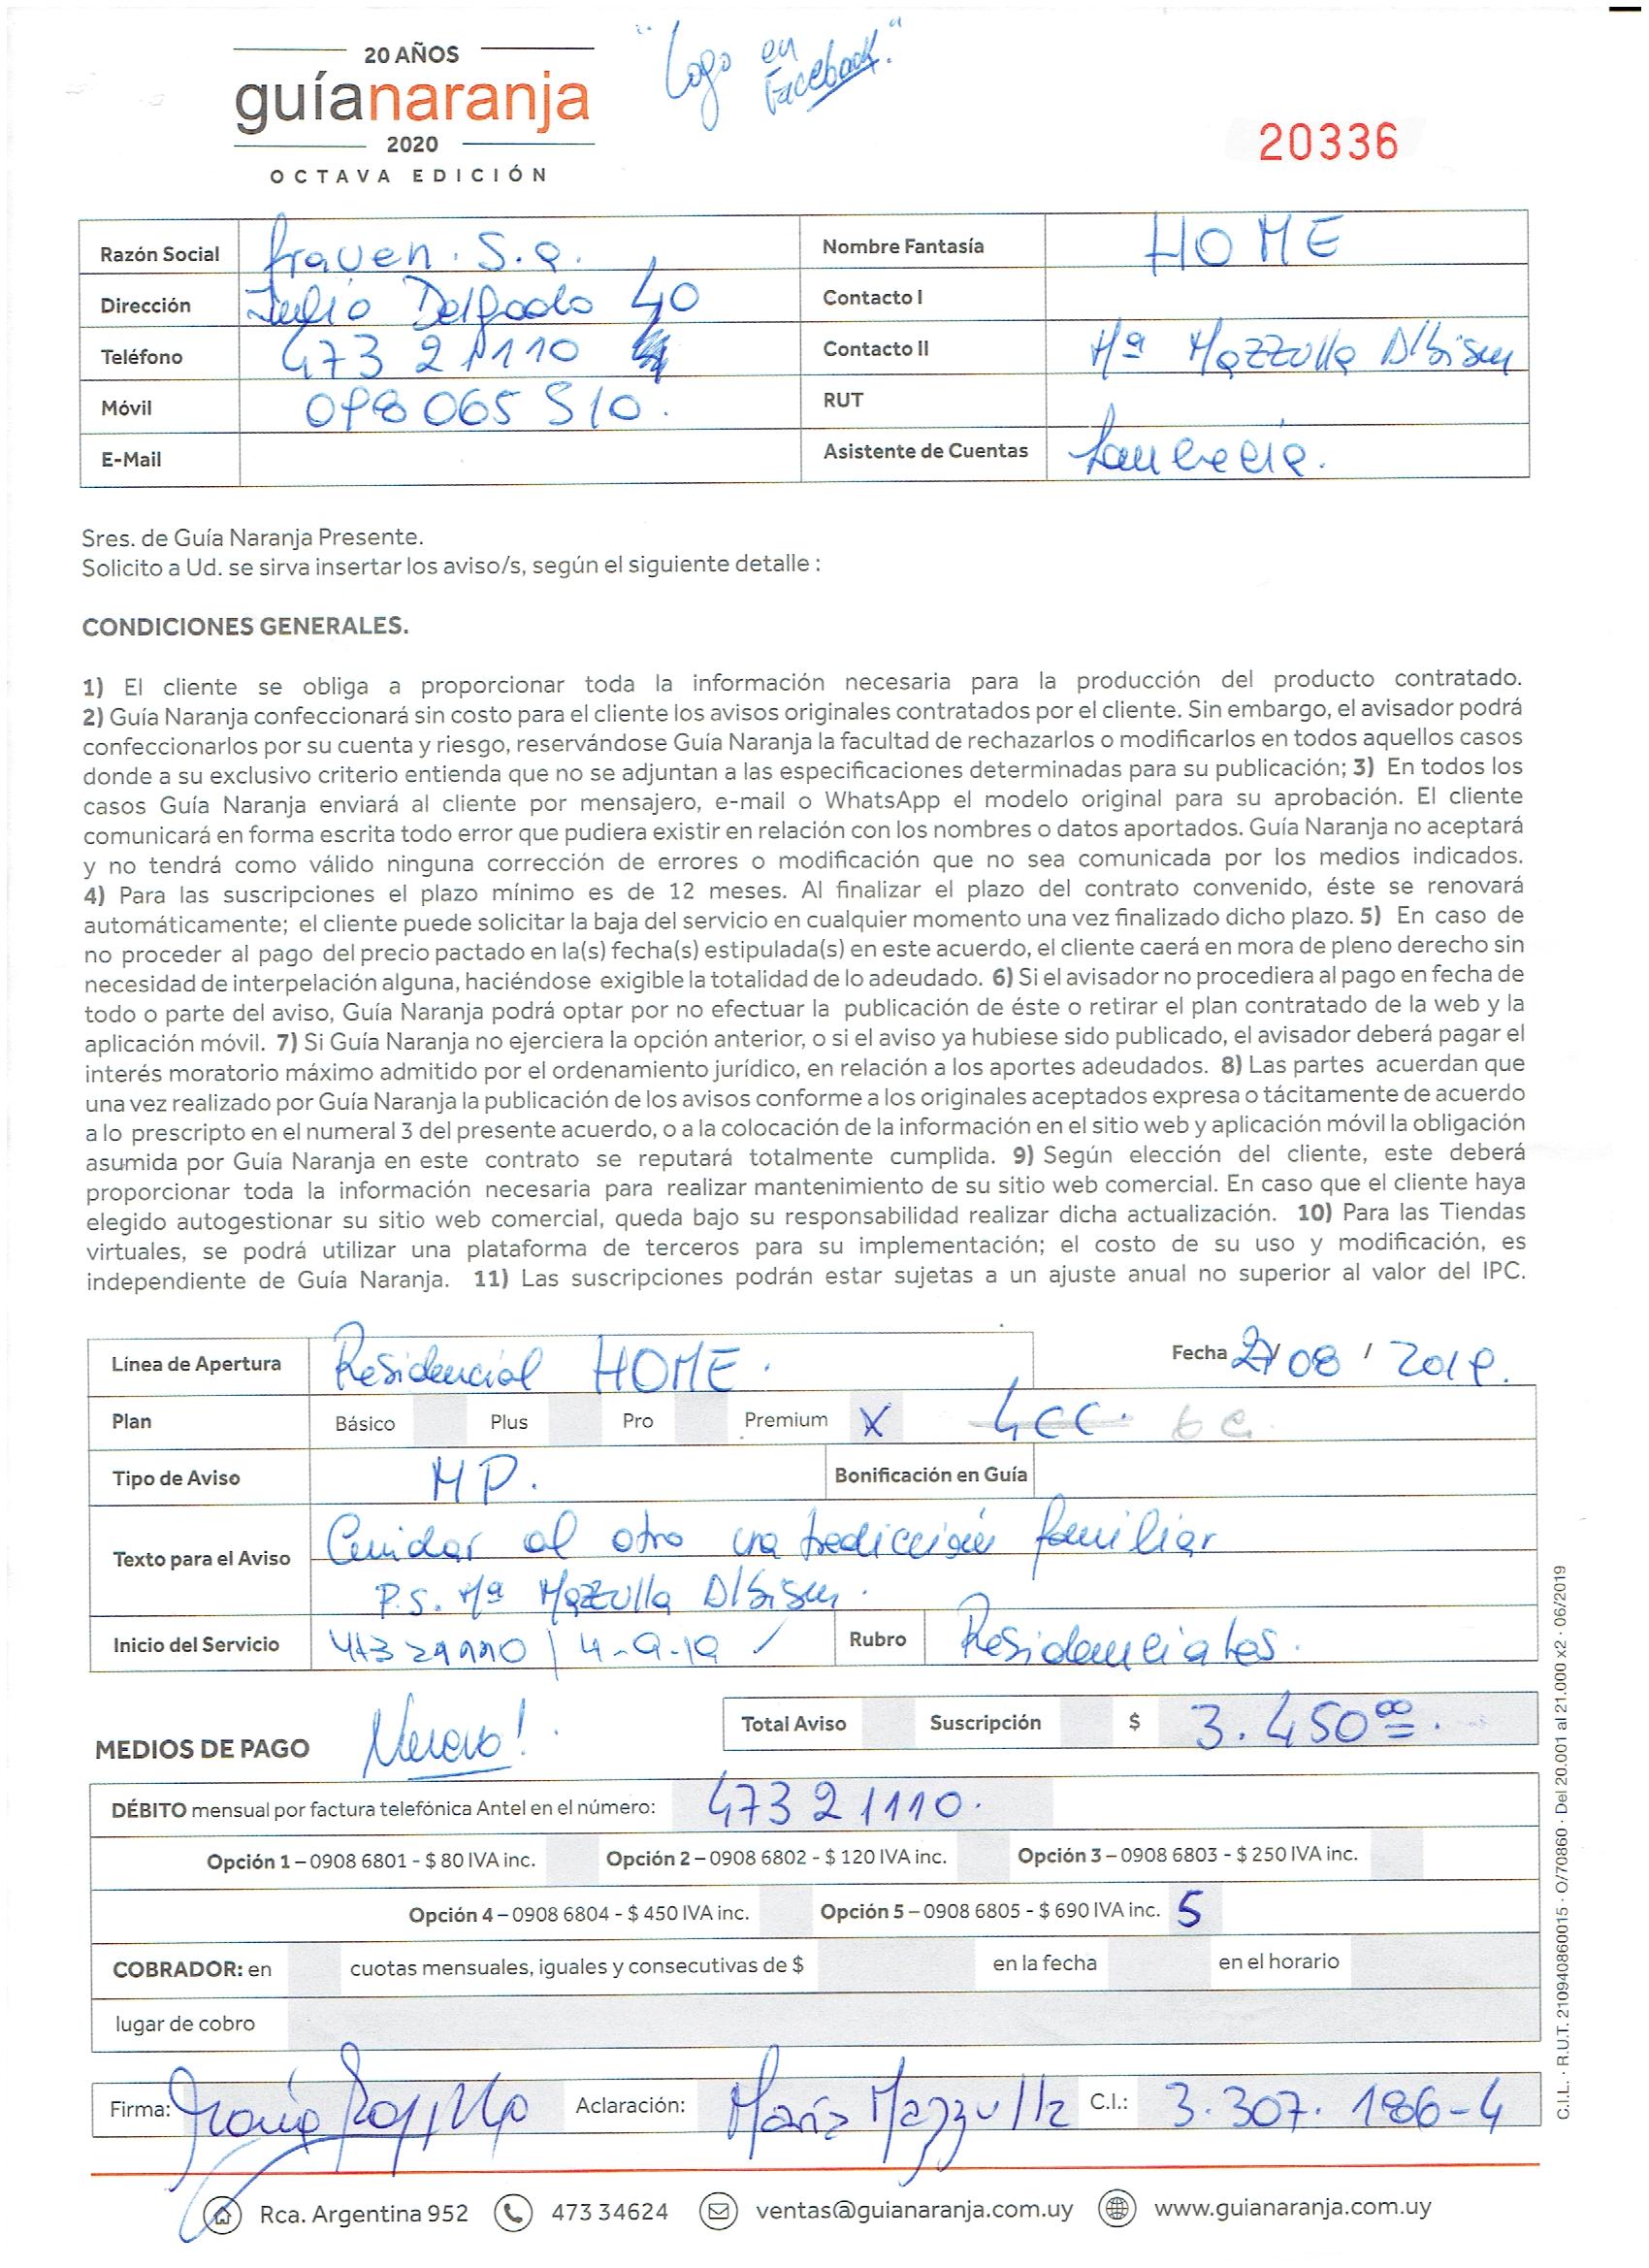 "Logo en
Facebook."
20 AÑOS
guíanaranja
2020
OCTAVA EDICIÓN
20336
Razón Social
S.a.
Nombre Fantasía HOME
Dirección Julio Delgado 40
Contacto I
Teléfono 473 21110
Contacto II Mª Mazzulla
Móvil 098 065 510.
RUT
E-Mail
Asistente de Cuentas
Sres. de Guía Naranja Presente.
Solicito a Ud. se sirva insertar los aviso/s, según el siguiente detalle :
CONDICIONES GENERALES.
1) El cliente se obliga a proporcionar toda la información necesaria para la producción del producto contratado.
2) Guía Naranja confeccionará sin costo para el cliente los avisos originales contratados por el cliente. Sin embargo, el avisador podrá
confeccionarlos por su cuenta y riesgo, reservándose Guía Naranja la facultad de rechazarlos o modificarlos en todos aquellos casos
donde a su exclusivo criterio entienda que no se adjuntan a las especificaciones determinadas para su publicación; 3) En todos los
casos Guía Naranja enviará al cliente por mensajero, e-mail o WhatsApp el modelo original para su aprobación. El cliente
comunicará en forma escrita todo error que pudiera existir en relación con los nombres o datos aportados. Guía Naranja no aceptará
y no tendrá como válido ninguna corrección de errores o modificación que no sea comunicada por los medios indicados.
4) Para las suscripciones el plazo mínimo es de 12 meses. Al finalizar el plazo del contrato convenido, éste se renovará
automáticamente; el cliente puede solicitar la baja del servicio en cualquier momento una vez finalizado dicho plazo. 5) En caso de
no proceder al pago del precio pactado en la(s) fecha(s) estipulada(s) en este acuerdo, el cliente caerá en mora de pleno derecho sin
necesidad de interpelación alguna, haciéndose exigible la totalidad de lo adeudado. 6) Si el avisador no procediera al pago en fecha de
todo o parte del aviso, Guía Naranja podrá optar por no efectuar la publicación de éste o retirar el plan contratado de la web y la
aplicación móvil. 7) Si Guía Naranja no ejerciera la opción anterior, o si el aviso ya hubiese sido publicado, el avisador deberá pagar el
interés moratorio máximo admitido por el ordenamiento jurídico, en relación a los aportes adeudados. 8) Las partes acuerdan que
una vez realizado por Guía Naranja la publicación de los avisos conforme a los originales aceptados expresa o tácitamente de acuerdo
a lo prescripto en el numeral 3 del presente acuerdo, o a la colocación de la información en el sitio web y aplicación móvil la obligación
asumida por Guía Naranja en este contrato se reputará totalmente cumplida. 9) Según elección del cliente, este deberá
proporcionar toda la información necesaria para realizar mantenimiento de su sitio web comercial. En caso que el cliente haya
elegido autogestionar su sitio web comercial, queda bajo su responsabilidad realizar dicha actualización. 10) Para las Tiendas
virtuales, se podrá utilizar una plataforma de terceros para su implementación; el costo de su uso y modificación, es
independiente de Guía Naranja. 11) Las suscripciones podrán estar sujetas a un ajuste anual no superior al valor del IPC.
Línea de Apertura Residencial HOME.
Fecha 08 / 2019.
Plan Básico Plus Pro Premium X 4CC.
Tipo de Aviso MP.
Bonificación en Guía
Texto para el Aviso Cuidar al otro una tradicción familiar
P.S. Mª Mazzulla
Inicio del Servicio 47321110 | 4-9-19
Rubro Residenciales.
MEDIOS DE PAGO Nuevo!
Total Aviso Suscripción $ 3.450⁰⁰.
DÉBITO mensual por factura telefónica Antel en el número: 473 21110.
Opción 1 – 0908 6801 - $ 80 IVA inc. Opción 2 – 0908 6802 - $ 120 IVA inc. Opción 3 – 0908 6803 - $ 250 IVA inc.
Opción 4 – 0908 6804 - $ 450 IVA inc. Opción 5 – 0908 6805 - $ 690 IVA inc. 5
COBRADOR: en cuotas mensuales, iguales y consecutivas de $ en la fecha en el horario
lugar de cobro
Firma:
Aclaración: María Mazzulla C.I.: 3.307.186-4
Rca. Argentina 952 473 34624 ventas@guianaranja.com.uy www.guianaranja.com.uy
C.I.L. · R.U.T. 210940860015 · O/70860 · Del 20.001 al 21.000 x2 · 06/2019